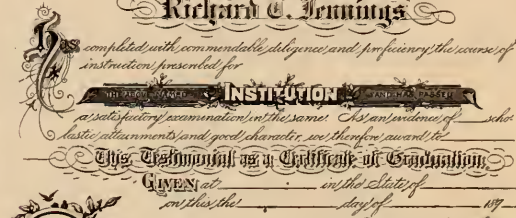 Richard C. Jennings
Has completed with commendable diligence and proficiency the course of
instruction prescribed for
THE ABOVE NAMED INSTITUTION AND HAS PASSED
a satisfactory examination in the same. As an evidence of scho
lastic attainments and good character, we therefore award to
This Testimonial as a Certificate of Graduation,
GIVEN at in the State of
on this the day of 189